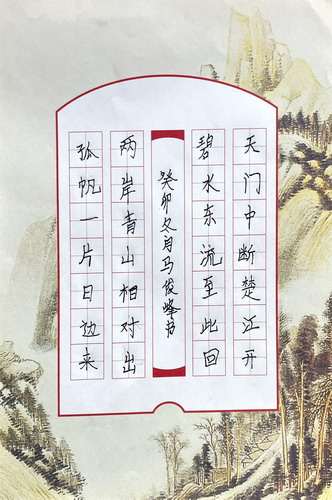 天门中断楚江开
碧水东流至此回
两岸青山相对出
孤帆一片日边来
癸卯冬月马俊峰书